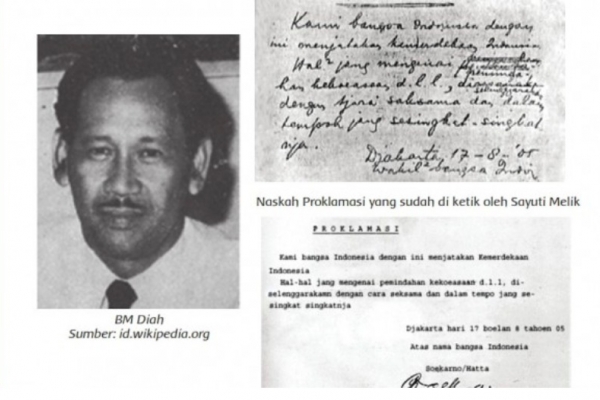 BM Diah
Sumber: id.wikipedia.org
Kami bangsa Indonesia dengan
ini menjatakan kemerdekaan Indonesia
Hal² jang mengenai
kekoeasaan d.l.l.,
dengan tjara saksama dan dalam
tempoh jang sesingkat-singkat
nja.
Djakarta, 17 - 8 - '05
Wakil² bangsa Indon
Naskah Proklamasi yang sudah di ketik oleh Sayuti Melik
P R O K L A M A S I
Kami bangsa Indonesia dengan ini menjatakan Kemerdekaan
Indonesia
Hal-hal jang mengenai pemindahan kekoeasaan d.l.l, di-
selenggarakamn dengan cara seksama dan dalam tempo jang se-
singkat singkatnja
Djakarta hari 17 boelan 8 tahoen 05
Atas nama bangsa Indonesia
Soekarno/Hatta